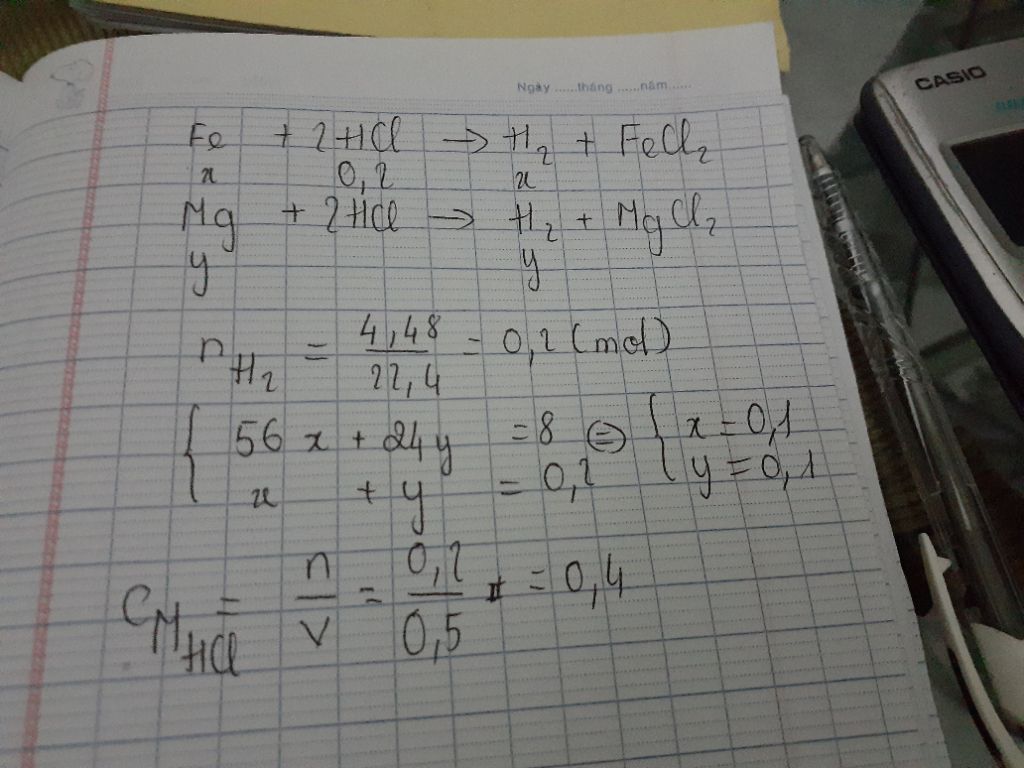 Ngày ......tháng ......năm ......
CASIO
Fe + 2HCl → H₂ + FeCl₂
x 0,2 x
Mg + 2HCl → H₂ + MgCl₂
y y
n H₂ = 4,48 / 22,4 = 0,2 (mol)
{ 56x + 24y = 8 ⇔ { x = 0,1
x + y = 0,2 y = 0,1
CM HCl = n / V = 0,2 / 0,5 = 0,4